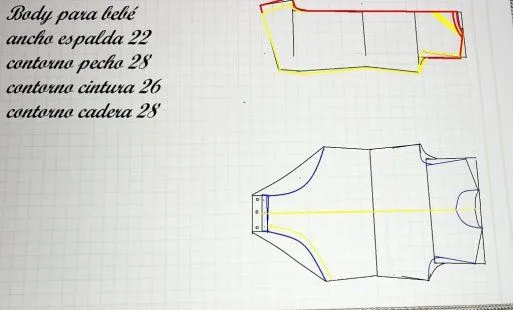 Body para bebé
ancho espalda 22
contorno pecho 28
contorno cintura 26
contorno cadera 28